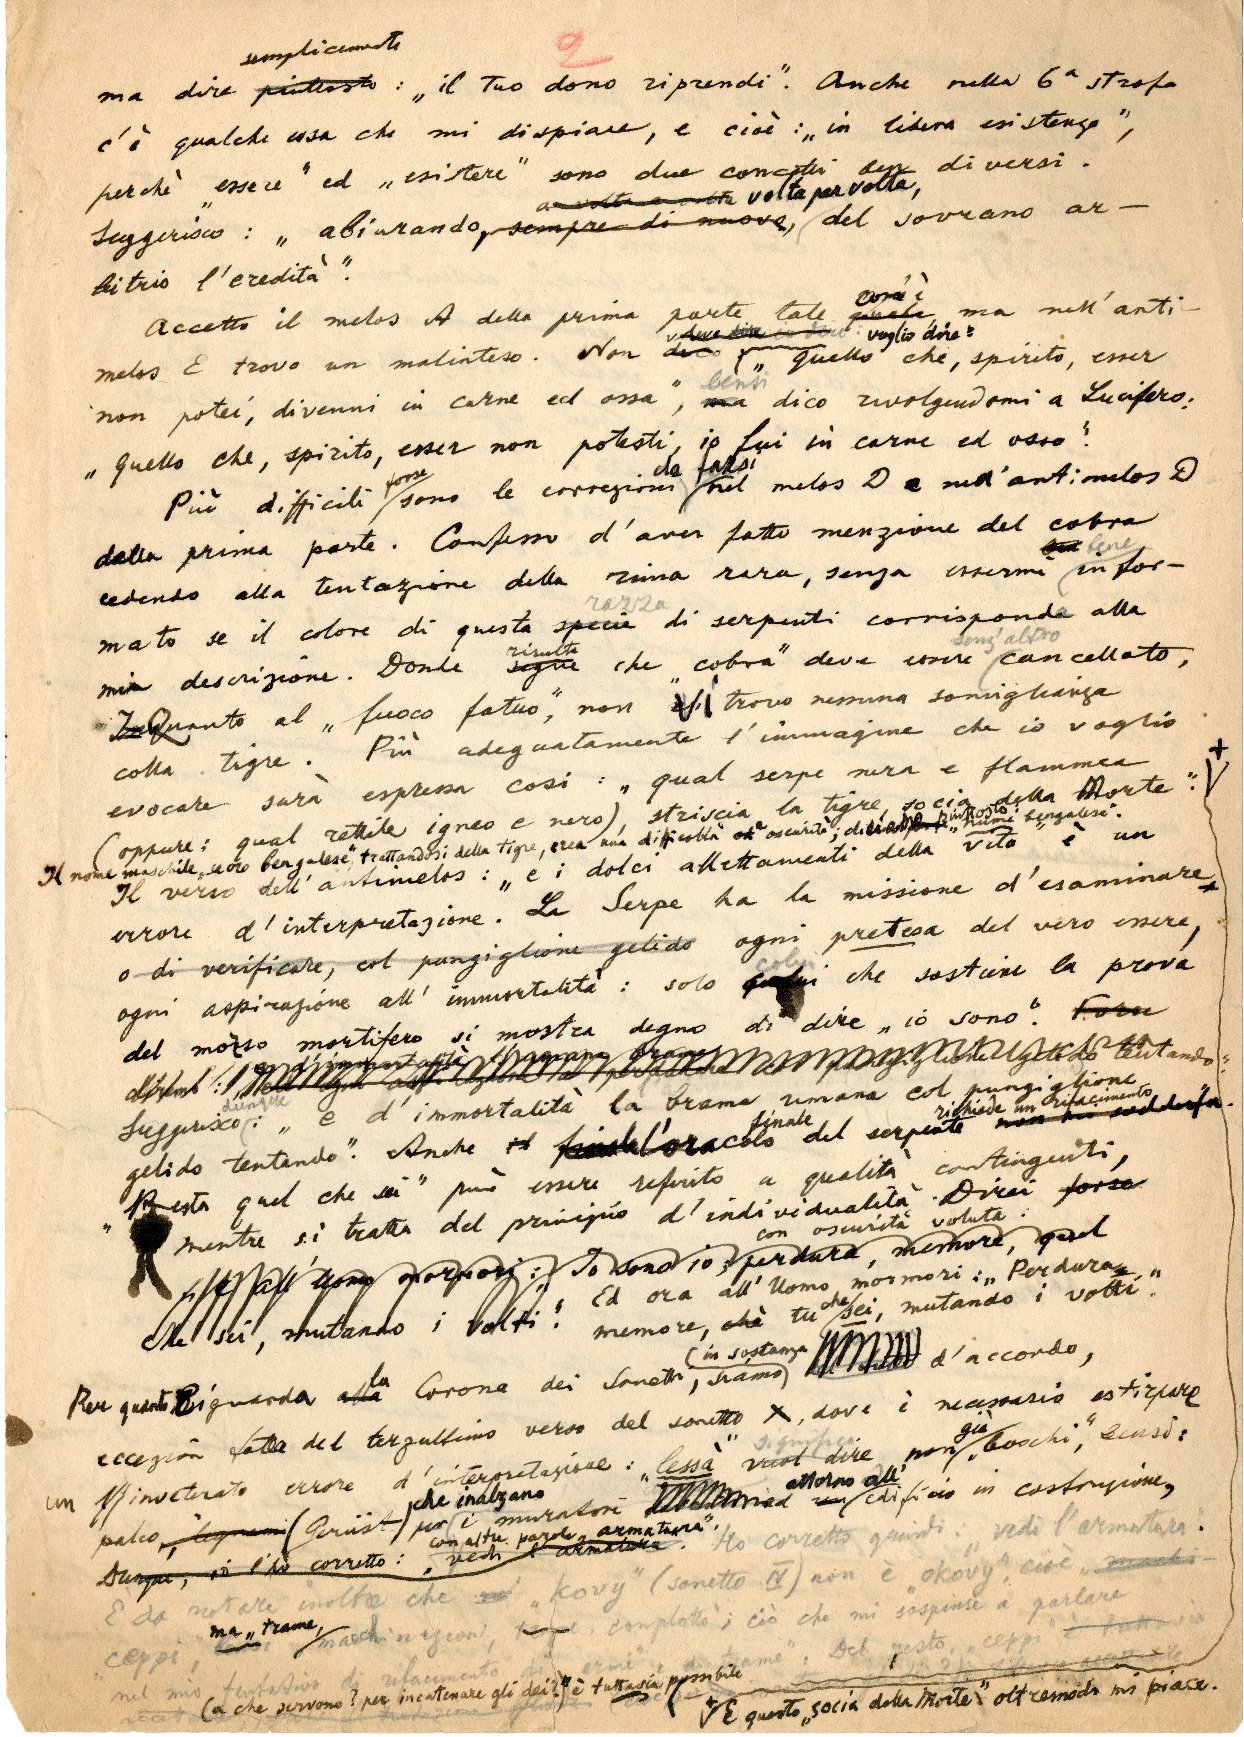 2
semplicemente
ma dire piuttosto : „il tuo dono riprendi”. Anche nella 6ª strofa
c'è qualche cosa che mi dispiace, e cioè : „in libera esistenza”,
perchè „essere” ed „esistere” sono due concetti ben diversi.
a volta a volta volta per volta,
Suggerisco : „abiurando, sempre di nuovo, del sovrano ar-
bitrio l'eredità”.
com'è
Accetto il melos A della prima parte tale quale, ma nell'anti-
voglio dire:
melos E trovo un malinteso. Non dico „quello che, spirito, esser
bensì
non potei, divenni in carne ed ossa”, ma dico rivolgendomi a Lucifero:
„Quello che, spirito, esser non potesti, io fui in carne ed ossa”.
forse da farsi
Più difficili sono le correzioni nel melos D e nell'antimelos D
della prima parte. Confesso d'aver fatto menzione del cobra
bene
cedendo alla tentazione della rima rara, senza essermi infor-
razza
mato se il colore di questa specie di serpenti corrisponde alla
risulta senz'altro
mia descrizione. Donde segue che „cobra” deve essere cancellato,
In Quanto al „fuoco fatuo”, non vi trovo nessuna somiglianza
colla tigre. Più adeguatamente l'immagine che io voglio
evocare sarà espressa così : „qual serpe nera e flammea
(oppure: qual rettile igneo e nero), striscia la tigre, socia della Morte”.
Il nome maschile „uoro bengalese”, trattandosi della tigre, crea una difficoltà e oscurità; piuttosto „nume bengalese”.
Il verso dell'antimelos : „e i dolci allettamenti della vita” è un
errore d'interpretazione. La Serpe ha la missione d'esaminare
o di verificare, col pungiglione gelido ogni pretesa del vero essere,
colui
ogni aspirazione all'immortalità : solo che sostiene la prova
del morso mortifero si mostra degno di dire „io sono”. Forse
tentando”
dunque
Suggerisco : „e d'immortalità la brama umana col pungiglione
finale richiede un rifacimento
gelido tentando”. Anche l'oracolo del serpente non mi soddisfa.
„Resta quel che sei” può essere riferito a qualità contingenti,
mentre si tratta del principio d'individualità. Direi forse
con oscurità voluta :
all'Uomo mormori : „Io sono io; perdura, memore, quel
Ed ora all'Uomo mormori : „Perdura,
che sei, mutando i volti”. memore, chè tu che sei, mutando i volti”.
in sostanza
Per quanto riguarda la Corona dei Sonetti, siamo d'accordo,
eccezion fatta del terzultimo verso del sonetto X, dove è necessario estirpare
significa già
un inveterato errore d'interpretazione : „lessà” vuol dire non „boschi”, bensì:
che inalzano attorno all'
palco, (Gerüst) per i muratori edificio in costruzione,
con altre parole, „armatura”.
Dunque, io l'ho corretto : „vedi l'armatura”. Ho corretto quindi : „vedi l'armatura”.
È da notare inoltre che „kovy” (sonetto IV) non è „okovy”, cioè
ma „trame,
„ceppi”, macchinazioni, complotto”; ciò che mi sospinse a parlare
nel mio tentativo di rifacimento di „armi” e „trame”. Del resto, „ceppi”
(a che servono? per incatenare gli dei?) è tuttavia possibile
+ E questo „socia della Morte” oltremodo mi piace.